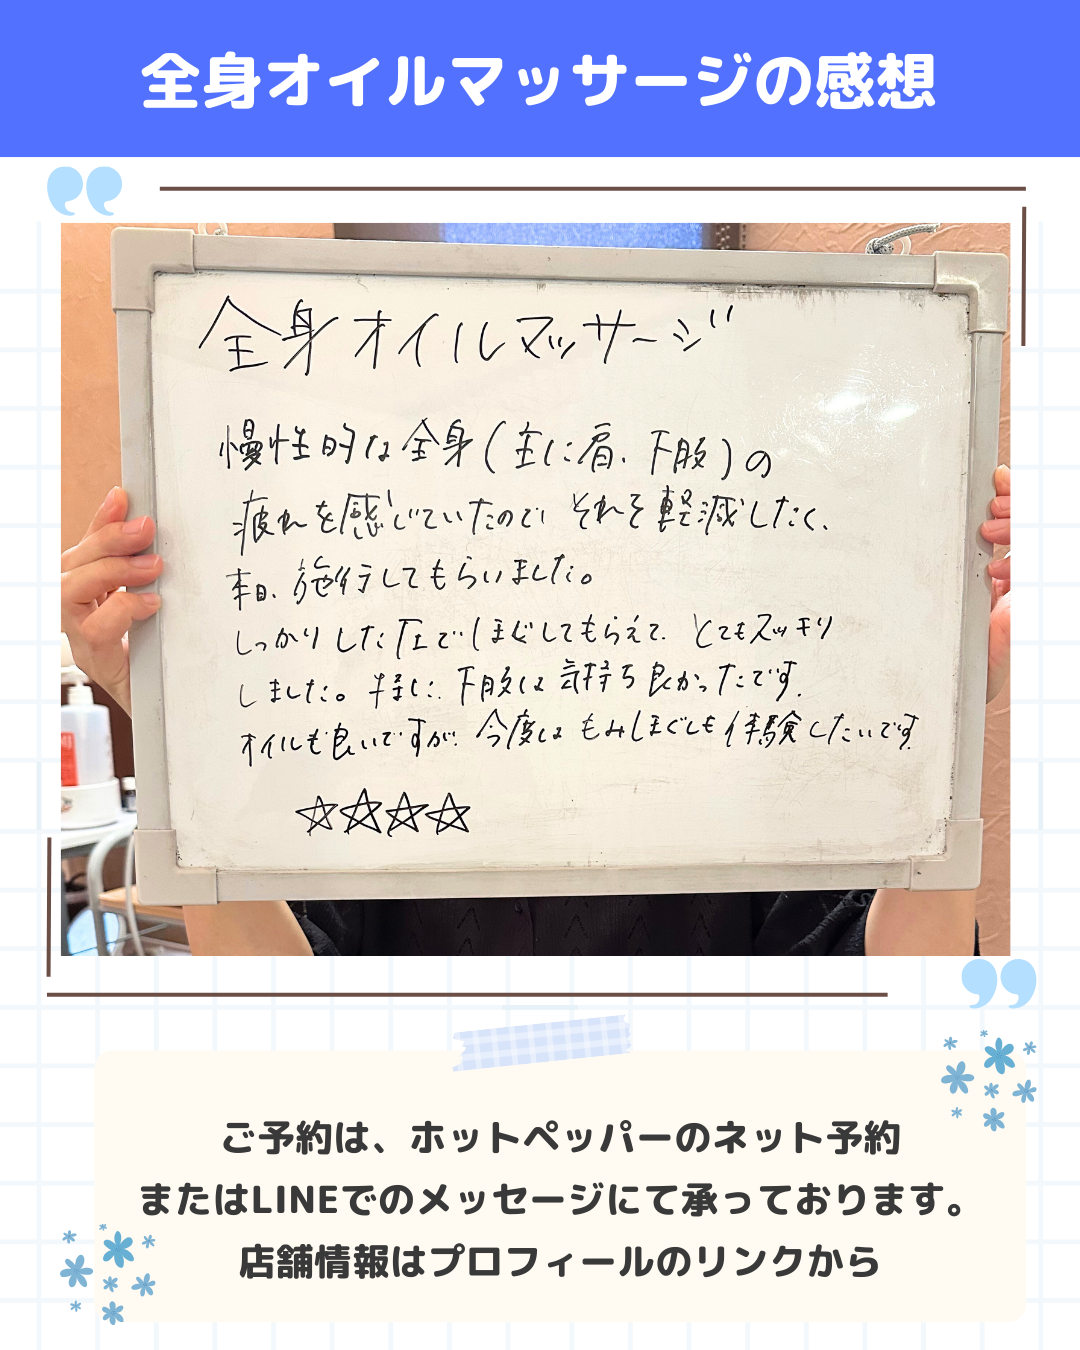 全身オイルマッサージの感想
全身オイルマッサージ
慢性的な全身(主に肩、下股)の
疲れを感じていたので、それを軽減したく、
本日、施行してもらいました。
しっかりした圧でほぐしてもらえて、とてもスッキリ
しました。特に、下股は気持ち良かったです。
オイルも良いですが、今度はもみほぐしも体験したいです。
☆☆☆☆
ご予約は、ホットペッパーのネット予約
またはLINEでのメッセージにて承っております。
店舗情報はプロフィールのリンクから